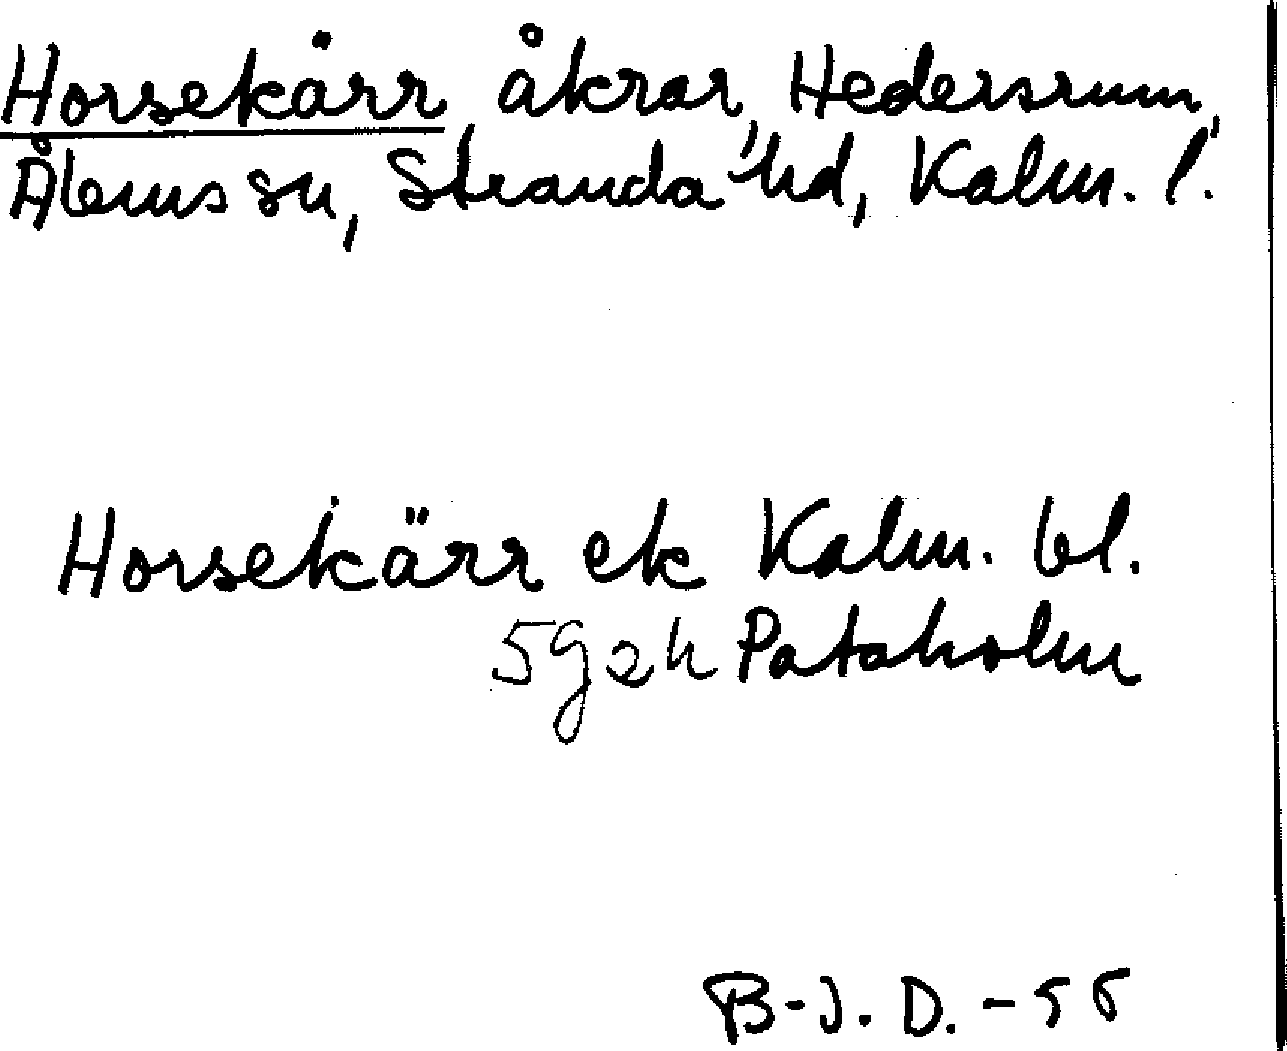 Horsekärr, åkrar, Hedersrum,
Ålems sn, Stranda hd, Kalm. l.
Horsekärr ek Kalm. bl.
5g2h Pataholm
B-J. D. - 55